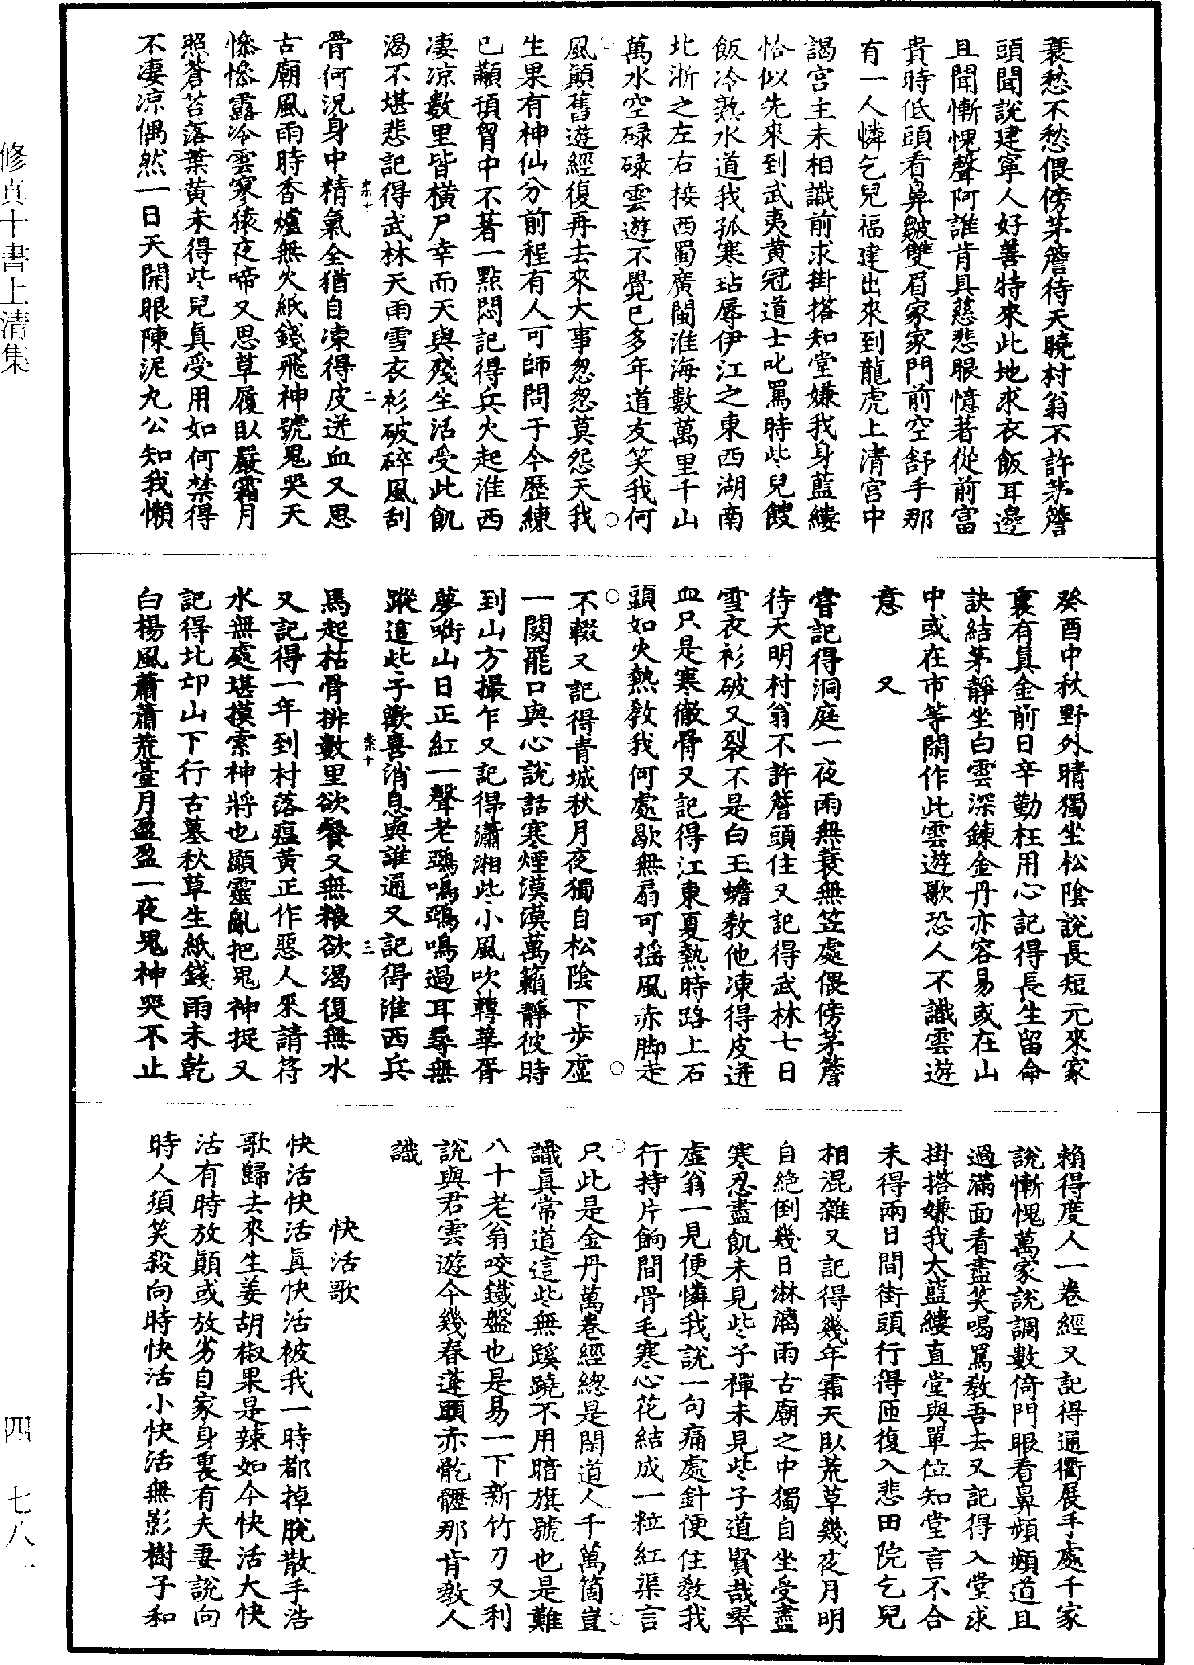 蓑愁不愁偎傍茅簷待天曉村翁不許茅簷
頭聞說建寧人好善特來此地求衣飯耳邊
且聞慚愧聲阿誰肯具慈悲眼憶著從前富
貴時低頭看鼻皺雙眉家家門前空舒手那
有一人憐乞兒福建出來到龍虎上清宮中
謁宮主未相識前求掛搭知堂嫌我身藍縷
恰似先來到武夷黃冠道士叱罵時些兒餿
飯冷熟水道我孤寒玷辱伊江之東西湖南
北浙之左右接西蜀廣閩淮海數萬里千山
萬水空碌碌雲遊不覺已多年道友笑我何
風顛舊遊經復再去來大事忽忽莫怨天我
生果有神仙分前程有人可師問于今歷練
已顢頇胷中不著一點悶記得兵火起淮西
凄凉數里皆橫尸幸而天與殘生活受此飢
渴不堪悲記得武林天雨雪衣衫破碎風刮
骨何況身中精氣全猶自凍得皮迸血又思
古廟風雨時香爐無火紙錢飛神號鬼哭天
慘慘露冷雲寒猿夜啼又思草履臥嚴霜月
照蒼苔落葉黃未得些兒真受用如何禁得
不凄凉偶然一日天開眼陳泥丸公知我懶
癸酉中秋野外晴獨坐松陰說長短元來家
裏有真金前日辛勤枉用心記得長生留命
訣結茅靜坐白雲深鍊金丹亦容易或在山
中或在市等閑作此雲遊歌恐人不識雲遊
意
又
嘗記得洞庭一夜雨無蓑無笠處偎傍茅簷
待天明村翁不許簷頭住又記得武林七日
雪衣衫破又裂不是白玉蟾教他凍得皮迸
血只是寒徹骨又記得江東夏熱時路上石
頭如火熱教我何處歇無扇可搖風赤脚走
不輟又記得青城秋月夜獨自松陰下步虛
一闋罷口與心說話寒煙漠漠萬籟靜彼時
到山方撮乍又記得瀟湘些小風吹轉華胥
夢啣山日正紅一聲老鵶鳴鵶鳴過耳尋無
蹤這些子歡喜消息與誰通又記得淮西兵
馬起枯骨排數里欲餐又無粮欲渴復無水
又記得一年到村落瘟黃正作惡人來請符
水無處堪摸索神將也顯靈亂把鬼神捉又
記得北邙山下行古墓秋草生紙錢雨未乾
白楊風蕭蕭荒臺月盈盈一夜鬼神哭不止
賴得度人一卷經又記得通衢展手處千家
說慚愧萬家說調數倚門眼看鼻頻頻道且
過滿面看盡笑喝罵教吾去又記得入堂求
掛搭嫌我太藍縷直堂與單位知堂言不合
未得兩日間街頭行得匝復入悲田院乞兒
相混雜又記得幾年霜天臥荒草幾夜月明
自絕倒幾日淋漓雨古廟之中獨自坐受盡
寒忍盡飢未見些子禪未見些子道賢哉翠
虛翁一見便憐我說一句痛處針便住教我
行持片餉間骨毛寒心花結成一粒紅渠言
只此是金丹萬卷經總是閑道人千萬箇豈
識真常道這些無蹊蹺不用暗旗號也是難
八十老翁咬鐵盤也是易一下新竹刀又利
說與君雲遊今幾春蓬頭赤骯髒那肯教人
識
快活歌
快活快活真快活被我一時都掉脫散手浩
歌歸去來生姜胡椒果是辣如今快活大快
活有時放顛或放劣自家身裏有夫妻說向
時人須笑殺向時快活小快活無影樹子和
修真十書上清集
四 七八一